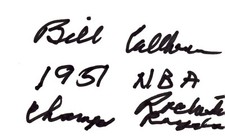 Bill Calhoun
1951 NBA
Champs Rochester
Royals